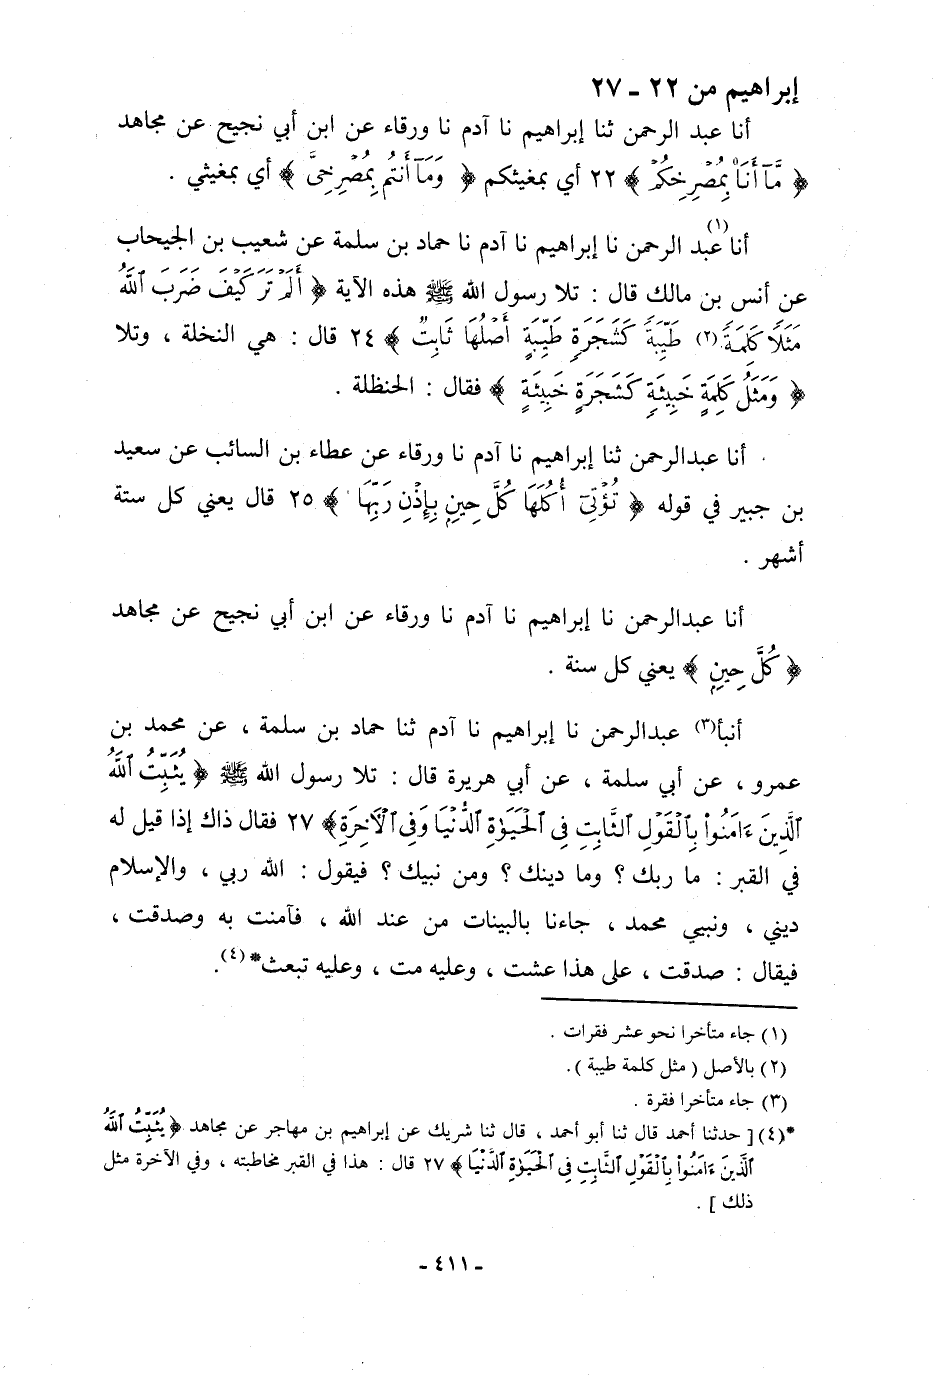 إبراهيم من ٢٢ ـ ٢٧
أنا عبد الرحمن ثنا إبراهيم نا آدم نا ورقاء عن ابن أبي نجيح عن مجاهد
﴿ مَّآ أَنَا۠ بِمُصْرِخِكُمْ ﴾ ٢٢ أي بمغيثكم ﴿ وَمَآ أَنتُم بِمُصْرِخِىَّ ﴾ أي بمغيثي .
أنا (١) عبد الرحمن نا إبراهيم نا آدم نا حماد بن سلمة عن شعيب بن الجيحاب
عن أنس بن مالك قال : تلا رسول الله ﷺ هذه الآية ﴿ أَلَمْ تَرَ كَيْفَ ضَرَبَ ٱللَّهُ
مَثَلًا كَلِمَةً (٢) طَيِّبَةً كَشَجَرَةٍ طَيِّبَةٍ أَصْلُهَا ثَابِتٌ ﴾ ٢٤ قال : هي النخلة ، وتلا
﴿ وَمَثَلُ كَلِمَةٍ خَبِيثَةٍ كَشَجَرَةٍ خَبِيثَةٍ ﴾ فقال : الحنظلة .
أنا عبدالرحمن ثنا إبراهيم نا آدم نا ورقاء عن عطاء بن السائب عن سعيد
بن جبير في قوله ﴿ تُؤْتِىٓ أُكُلَهَا كُلَّ حِينٍۭ بِإِذْنِ رَبِّهَا ﴾ ٢٥ قال يعني كل ستة
أشهر .
أنا عبدالرحمن نا إبراهيم نا آدم نا ورقاء عن ابن أبي نجيح عن مجاهد
﴿ كُلَّ حِينٍۭ ﴾ يعني كل سنة .
أنبأ (٣) عبدالرحمن نا إبراهيم نا آدم ثنا حماد بن سلمة ، عن محمد بن
عمرو ، عن أبي سلمة ، عن أبي هريرة قال : تلا رسول الله ﷺ ﴿ يُثَبِّتُ ٱللَّهُ
ٱلَّذِينَ ءَامَنُوا۟ بِٱلْقَوْلِ ٱلثَّابِتِ فِى ٱلْحَيَوٰةِ ٱلدُّنْيَا وَفِى ٱلْآخِرَةِ ﴾ ٢٧ فقال ذاك إذا قيل له
في القبر : ما ربك ؟ وما دينك ؟ ومن نبيك ؟ فيقول : الله ربي ، والإسلام
ديني ، ونبيي محمد ، جاءنا بالبينات من عند الله ، فآمنت به وصدقت ،
فيقال : صدقت ، على هذا عشت ، وعليه مت ، وعليه تبعث* (٤).
(١) جاء متأخرا نحو عشر فقرات .
(٢) بالأصل ( مثل كلمة طيبة ).
(٣) جاء متأخرا فقرة .
*(٤) [ حدثنا أحمد قال ثنا أبو أحمد ، قال ثنا شريك عن إبراهيم بن مهاجر عن مجاهد ﴿ يُثَبِّتُ ٱللَّهُ
ٱلَّذِينَ ءَامَنُوا۟ بِٱلْقَوْلِ ٱلثَّابِتِ فِى ٱلْحَيَوٰةِ ٱلدُّنْيَا ﴾ ٢٧ قال : هذا في القبر مخاطبته ، وفي الآخرة مثل
ذلك ] .
ـ ٤١١ ـ